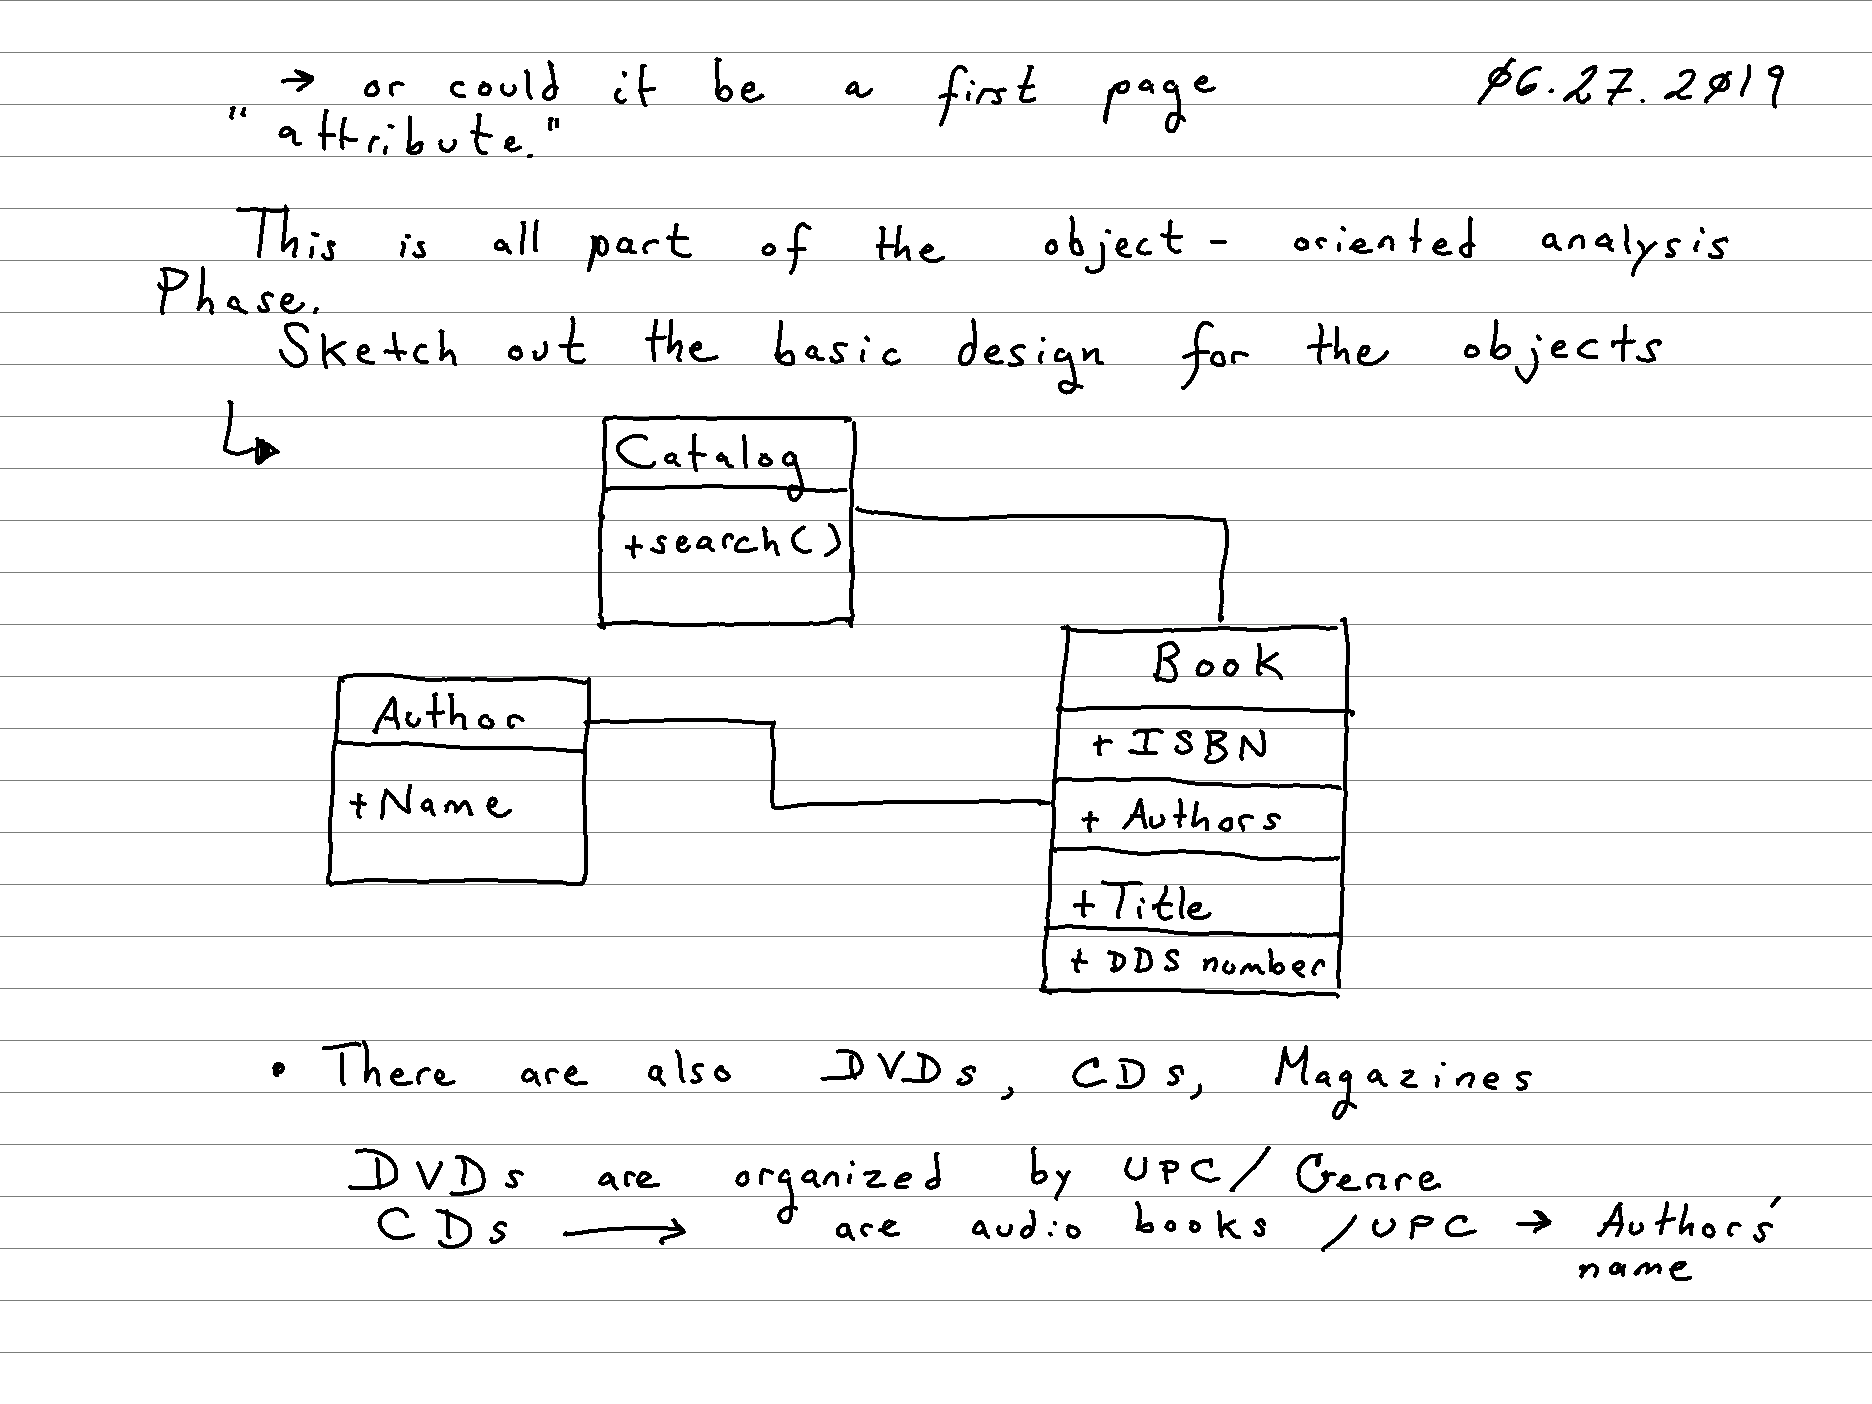 → or could it be a first page 06.27.2019
"attribute."
This is all part of the object-oriented analysis
Phase.
Sketch out the basic design for the objects
Catalog
+search()
Author
+Name
Book
+ ISBN
+ Authors
+Title
+ DDS number
• There are also DVDs, CDs, Magazines
DVDs are organized by UPC/Genre
CDs → are audio books /UPC → Authors'
name